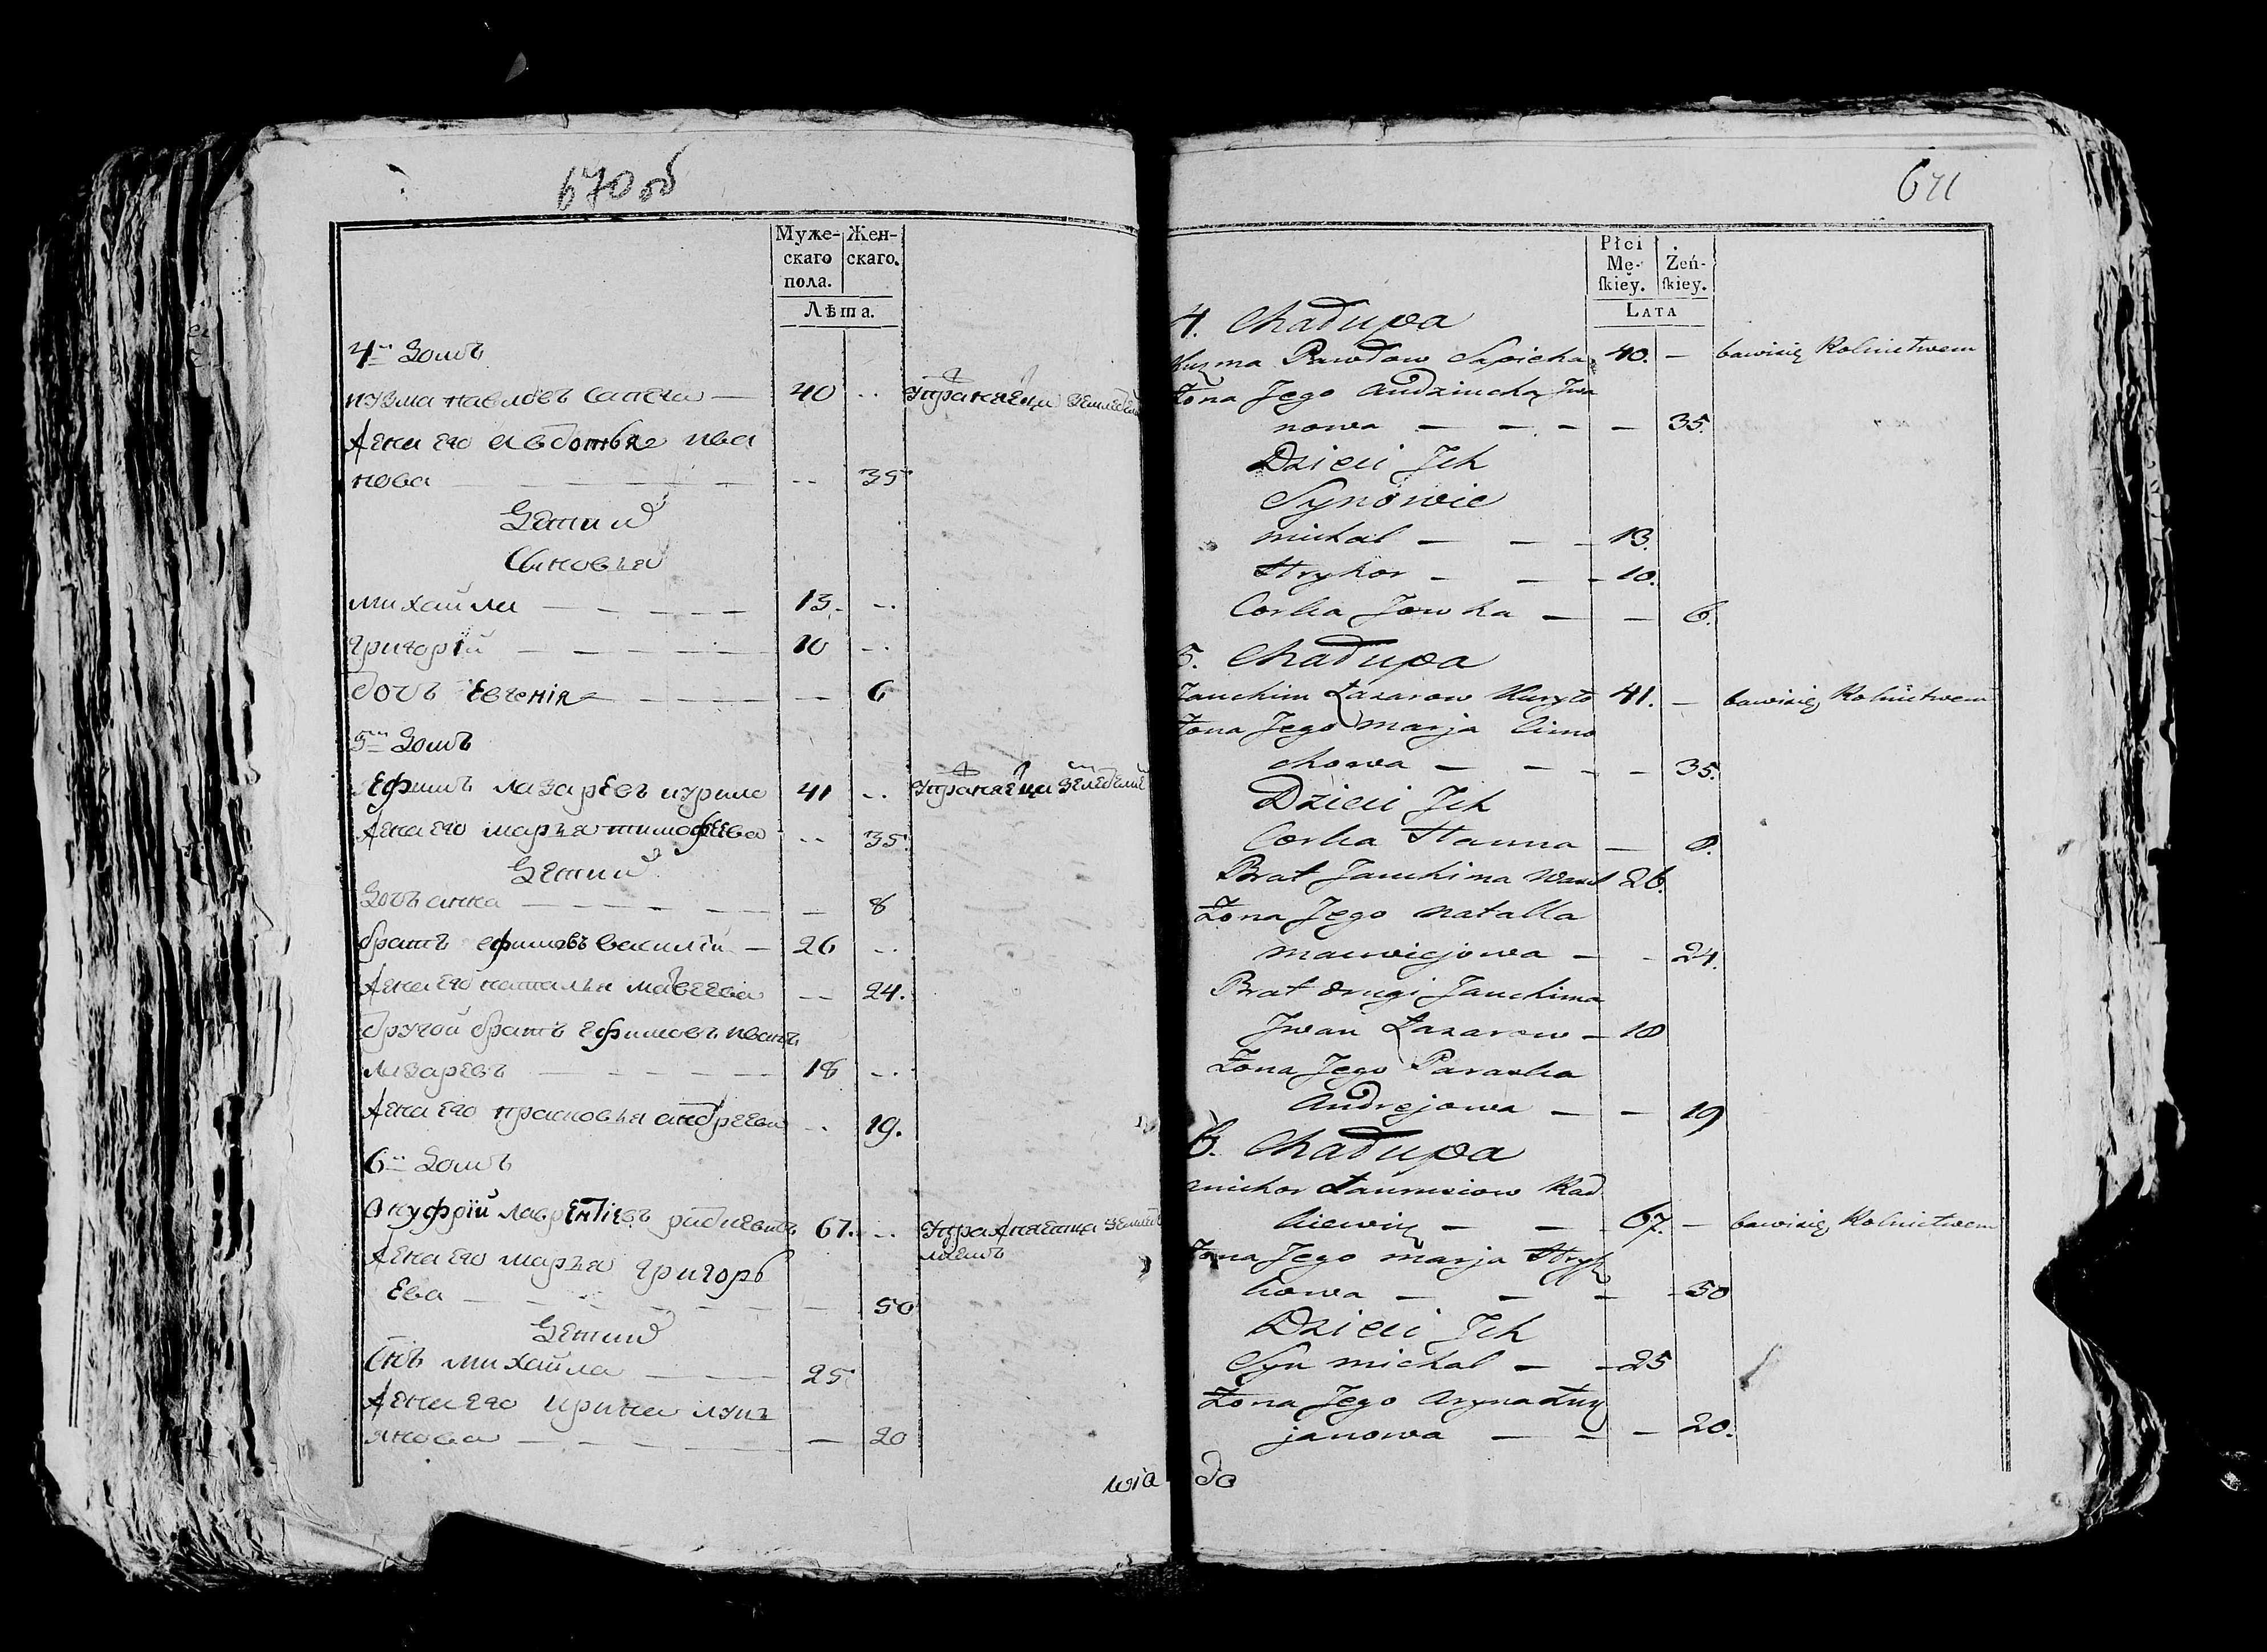 670об
Муже-
скаго
пола.
Жен-
скаго.
Лѣта.
4й Домъ
кузма павловъ сапега — 40 --
упражняеца
Жена его авдотья ива
нова — -- 35
Дети
Сыновья
михайла — 13. --
григорій — 10 --
дочь Евгенія — -- 6
5й Домъ
Ефимъ лазаревъ курило 41 --
упражняеца
Жена его марья тимофеева -- 35.
Дети
Дочь анна — 8
братъ ефимовъ василій — 26 --
Жена его наталья мавеева -- 24.
другой братъ ефимовъ иванъ
лазаревъ — 18 --
Жена его прасковья андреева -- 19.
6й Домъ
Онуфрій лаврентіевъ 67. --
упражняетца
Жена его марья григорь
Ева — 50
Дети
Снъ михайла — 25
Жена его ирина лукь
янова — 20
wia
671
Płci
Mę-
ſkiey.
Żeń-
ſkiey.
LATA
4. Chałupa
Kuzma Pawłow Sapieha 40. — bawi się Rolnictwem
Żona Jego Audziucha Iwa
nowa — — — — 35.
Dzieci Ich
Synowie
michał — — — 13.
Hryhor — — — 10.
Corka Jowka — — 6.
5. Chałupa
Jauchim Łazarow Kuryło 41. — bawi się Rolnictwem
Żona Jego Marja Cimo
chowa — — — — 35.
Dzieci Ich
Corka Hanna — 8.
Brat Jauchima Wasil 26.
Żona Jego Natalla
Mauwiejowa — - 24.
Brat drugi Jauchima
Iwan Łazarow — 18
Żona Jego Paraska
Andrejowa — — 19
6. Chałupa
Łaurusiow Rad
kiewicz — — 67. — bawi się Rolnictwem
Żona Jego marja Hryh
howa — — — - 50
Dzieci Ich
Syn michał — - 25
Żona Jego Aryna Łuk
janowa — — — 20.
do